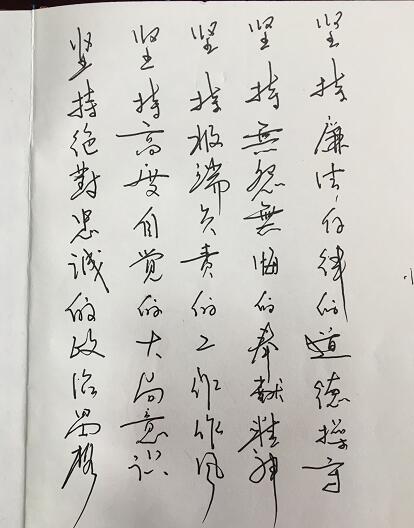 坚持绝對忠诚的政治品格
坚持高度自觉的大局意识
坚持极端负责的工作作风
坚持無怨無悔的奉献精神
坚持廉洁自律的道德操守